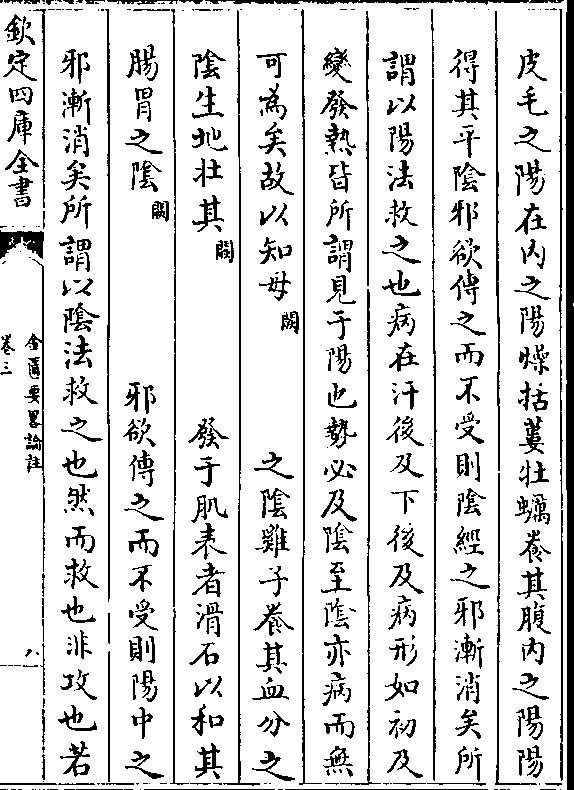 皮毛之陽在內之陽燥括蔞牡蠣養其腹內之陽陽
得其平陰邪欲傳之而不受則陰經之邪漸消矣所
謂以陽法救之也病在汗後及下後及病形如初及
變發熱皆所謂見于陽也勢必及陰至陰亦病而無
可為矣故以知母闕之陰雞子養其血分之
陰生地壯其闕發于肌表者滑石以和其
腸胃之陰闕邪欲傳之而不受則陽中之
邪漸消矣所謂以陰法救之也然而救也非攻也若
欽定四庫全書
金匱要畧論註
卷三
八